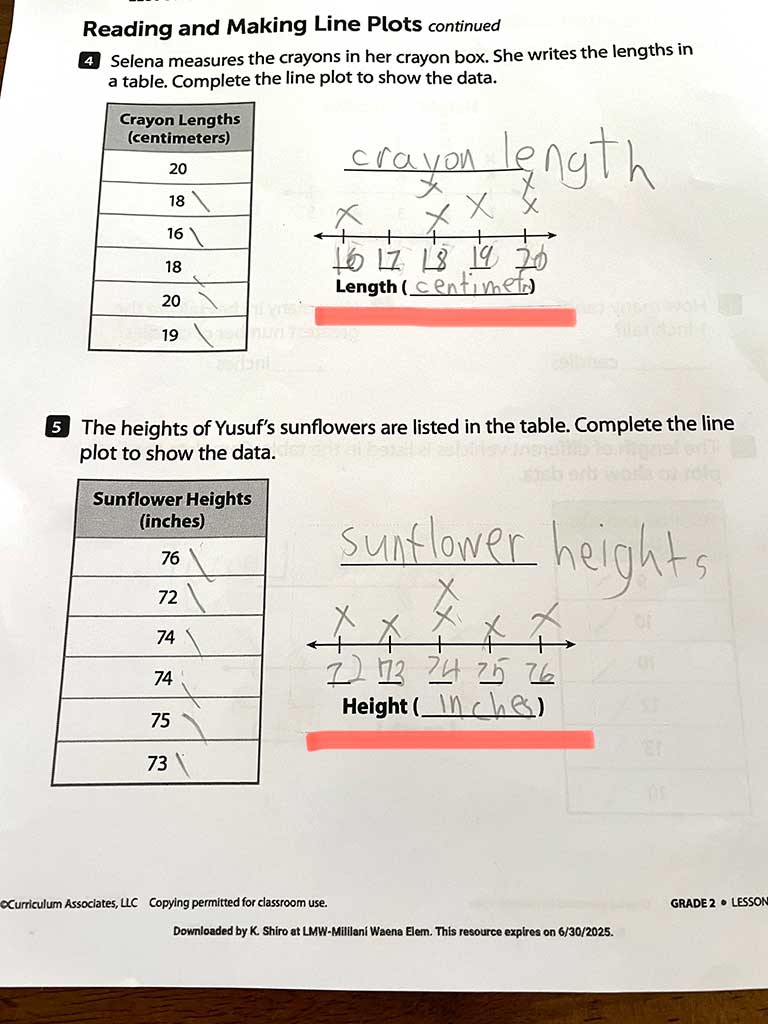 Reading and Making Line Plots continued
4 Selena measures the crayons in her crayon box. She writes the lengths in
a table. Complete the line plot to show the data.
Crayon Lengths
(centimeters)
20
18
16
18
20
19
crayon length
x x x x x x
16 17 18 19 20
Length (centimetr)
5 The heights of Yusuf's sunflowers are listed in the table. Complete the line
plot to show the data.
Sunflower Heights
(inches)
76
72
74
74
75
73
sunflower heights
x
x x x x x
72 73 74 75 76
Height (inches)
©Curriculum Associates, LLC Copying permitted for classroom use.
GRADE 2 • LESSON
Downloaded by K. Shiro at LMW-Mililani Waena Elem. This resource expires on 6/30/2025.